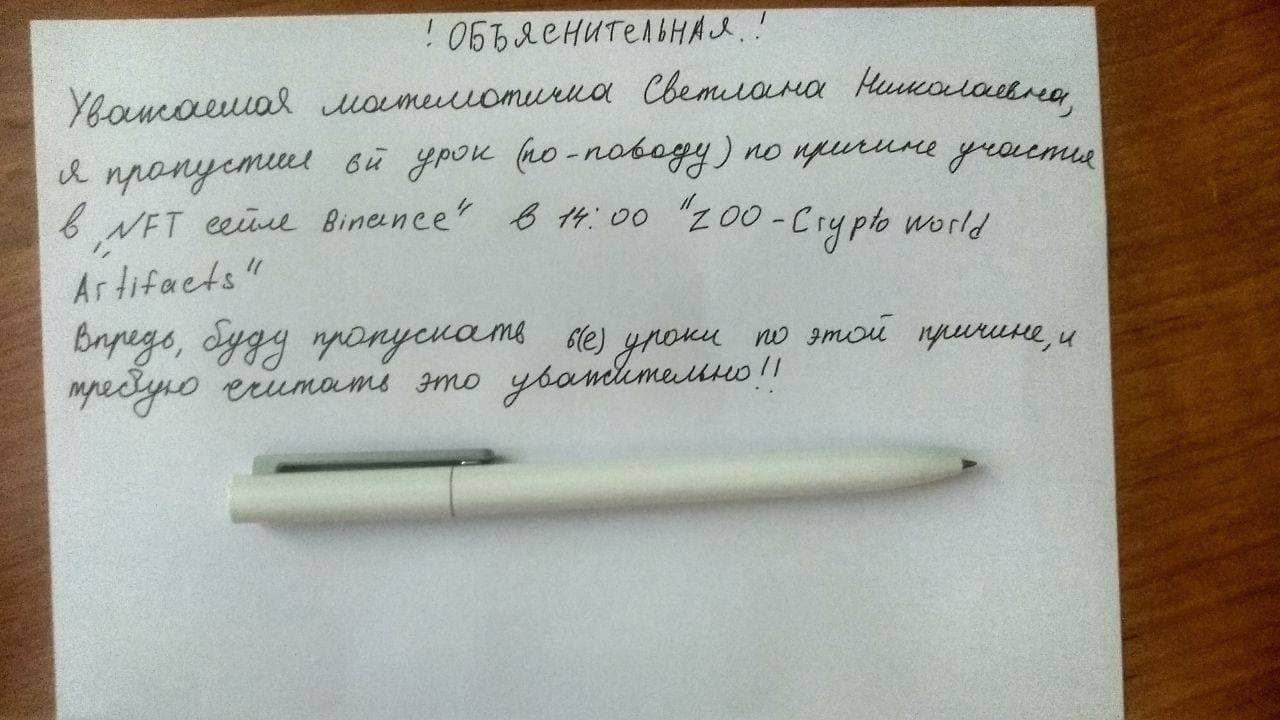 ! ОБЪЯСНИТЕЛЬНАЯ. !
Уважаемая математичка Светлана Николаевна,
я пропустил 6й урок (по-поводу) по причине участия
в „NFT сейле Binance" в 14:00 "ZOO - Crypto world
Artifacts"
Впредь, буду пропускать 6(е) уроки по этой причине, и
требую считать это уважительно!!